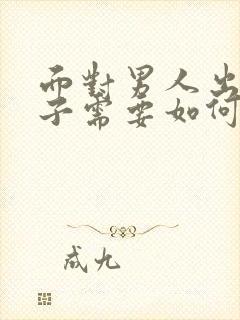 而對男人出
子需要如何
成九